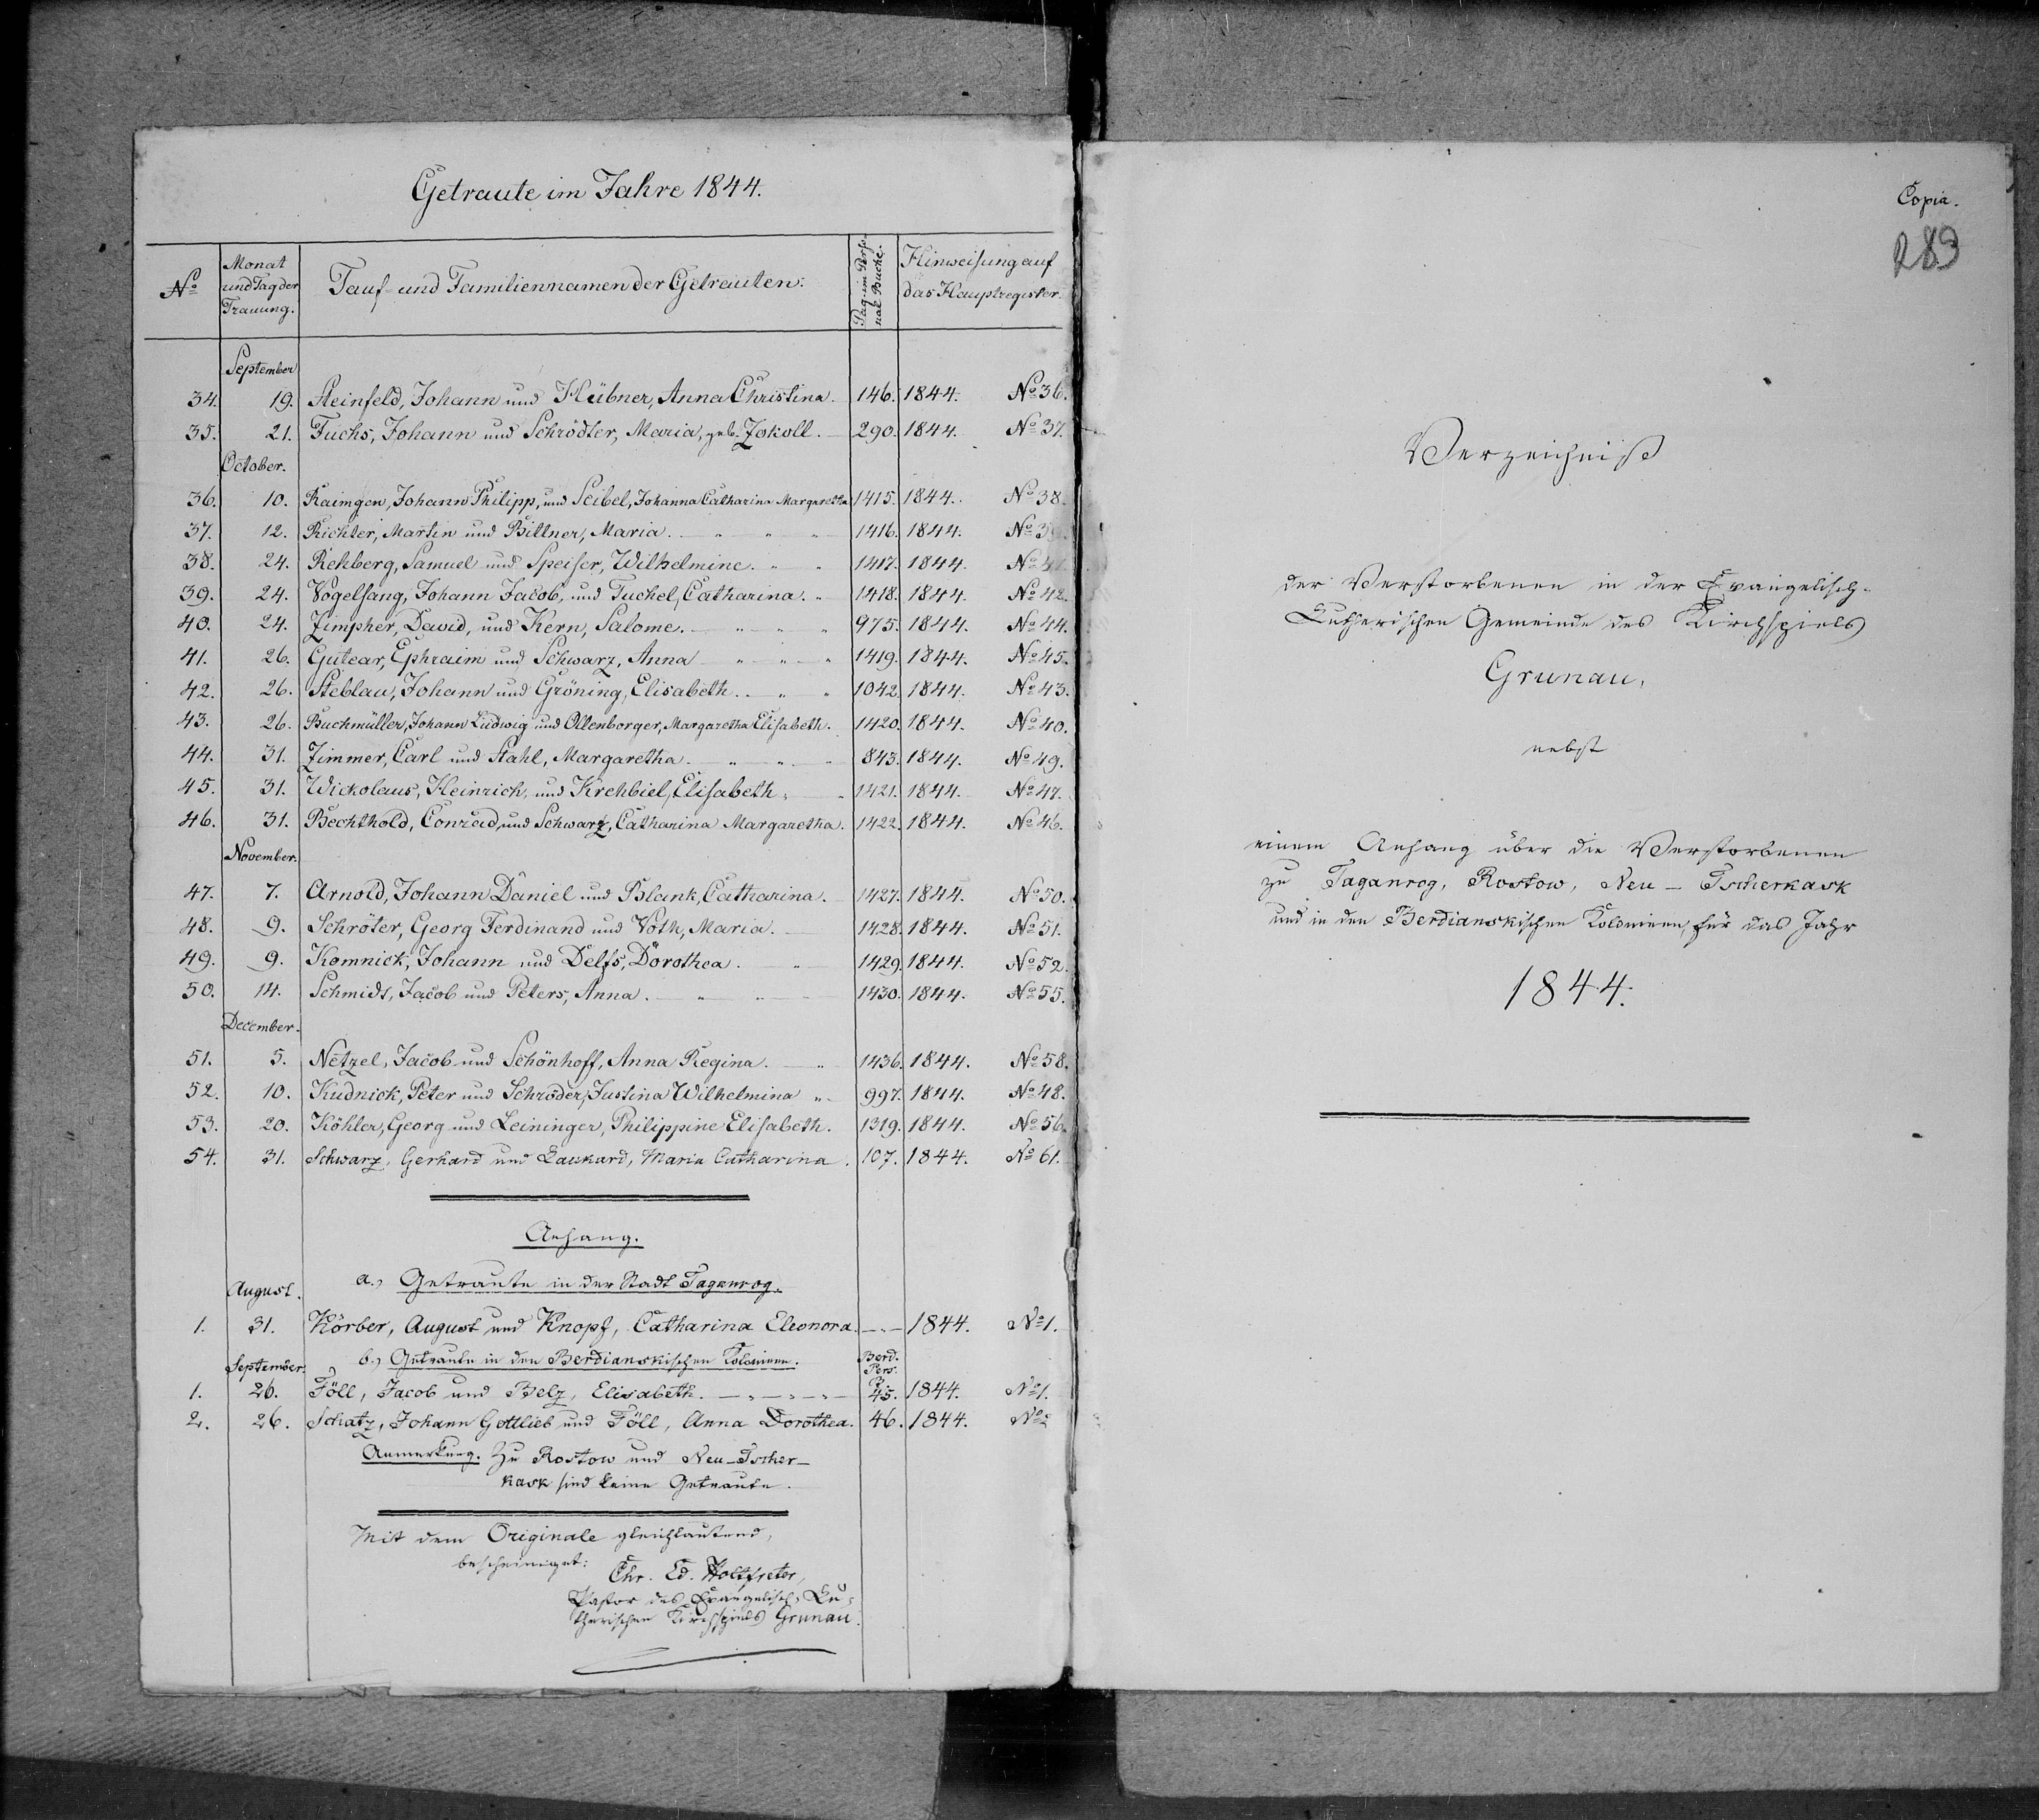 Getraute im Jahre 1844.
№
Monat
und Tag der
Trauung.
Tauf- und Familiennamen der Getrauten.
Pag. im Perso-
nal Buche.
Hinweisung auf
das Hauptregister.
September
34. 19. Steinfeld, Johann und Hübner, Anna Christina. 146. 1844. №36.
35. 21. Fuchs, Johann und Schrödter, Maria, geb. Zokoll. 290. 1844. №37.
October.
36. 10. Raimgen, Johann Philipp, und Seibel, Johanna Catharina Margaretha 1415. 1844. №38.
37. 12. Richter, Martin und Bittner, Maria. 1416. 1844. №39.
38. 24. Rehberg, Samuel und Speiser, Wilhelmine. 1417. 1844. №41.
39. 24. Vogelsang, Johann Jacob, und Tuchel, Catharina. 1418. 1844. №42.
40. 24. Zimpher, David, und Kern, Salome. 975. 1844. №44.
41. 26. Gutear, Ephraim und Schwarz, Anna 1419. 1844. №45.
42. 26. Steblau, Johann und Gröning, Elisabeth. 1042. 1844. №43.
43. 26. Buchmüller, Johann Ludwig und Ollenborger, Margaretha Elisabeth. 1420. 1844. №40.
44. 31. Zimmer, Carl und Stahl, Margaretha. 843. 1844. №49.
45. 31. Wickolaus, Heinrich, und Krehbiel, Elisabeth. 1421. 1844. №47.
46. 31. Bechthold, Conrad, und Schwarz, Catharina Margaretha. 1422. 1844. №46.
November.
47. 7. Arnold, Johann Daniel und Blank, Catharina. 1427. 1844. №50.
48. 9. Schröter, Georg Ferdinand und Voth, Maria. 1428. 1844. №51.
49. 9. Komnick, Johann und Delfs, Dorothea. 1429. 1844. №52.
50. 14. Schmidt, Jacob und Peters, Anna. 1430. 1844. №55.
December.
51. 5. Netzel, Jacob und Schönhoff, Anna Regina. 1436. 1844. №58.
52. 10. Kudnick, Peter und Schröder, Justina Wilhelmina 997. 1844. №48.
53. 20. Köhler, Georg und Leininger, Philippine Elisabeth. 1319. 1844. №56.
54. 31. Schwarz, Gerhard und Laukard, Maria Catharina. 107. 1844. №61.
Anhang.
a., Getraute in der Stadt Taganrog.
August.
1. 31. Körber, August und Knopf, Catharina Eleonora. 1844. №1.
b., Getraute in den Berdianskischen Kolonien.
September. Berd. Pers. B.
1. 26. Föll, Jacob und Belz, Elisabeth. 45. 1844. №1.
2. 26. Schatz, Johann Gottlieb und Föll, Anna Dorothea. 46. 1844. №2
Anmerkung. Zu Rostow und Neu-Tscher-
kask sind keine Getraute.
Mit dem Originale gleichlautend,
bescheiniget:
Chr. Ed. Holtfreter,
Pastor des Evangelisch-Lu-
therischen Kirchspiels Grunau.
Copia.
283
Verzeichniß
der Verstorbenen in der Evangelisch-
Lutherischen Gemeinde des Kirchspiels
Grunau,
nebst
einem Anhang über die Verstorbenen
zu Taganrog, Rostow, Neu-Tscherkask
und in den Berdianskischen Kolonieen, für das Jahr
1844.